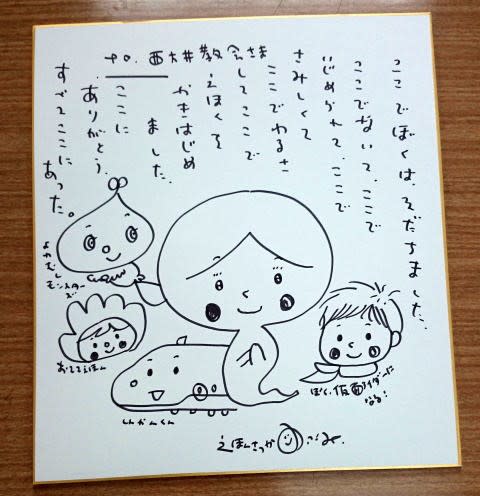 ここでぼくは、そだちました、
ここでないて、ここで
いじめられて、ここで
さみしくて
ここでわるさ
してここで
えほんを
かきはじめ
ました、
ここに
ありがとう、
すべてここに
あった。
西大井教会さま
よわむし
モンスターズ
おててえほん
しんかんくん
ぼく、仮面ライダーに
なる!
えほんさっか